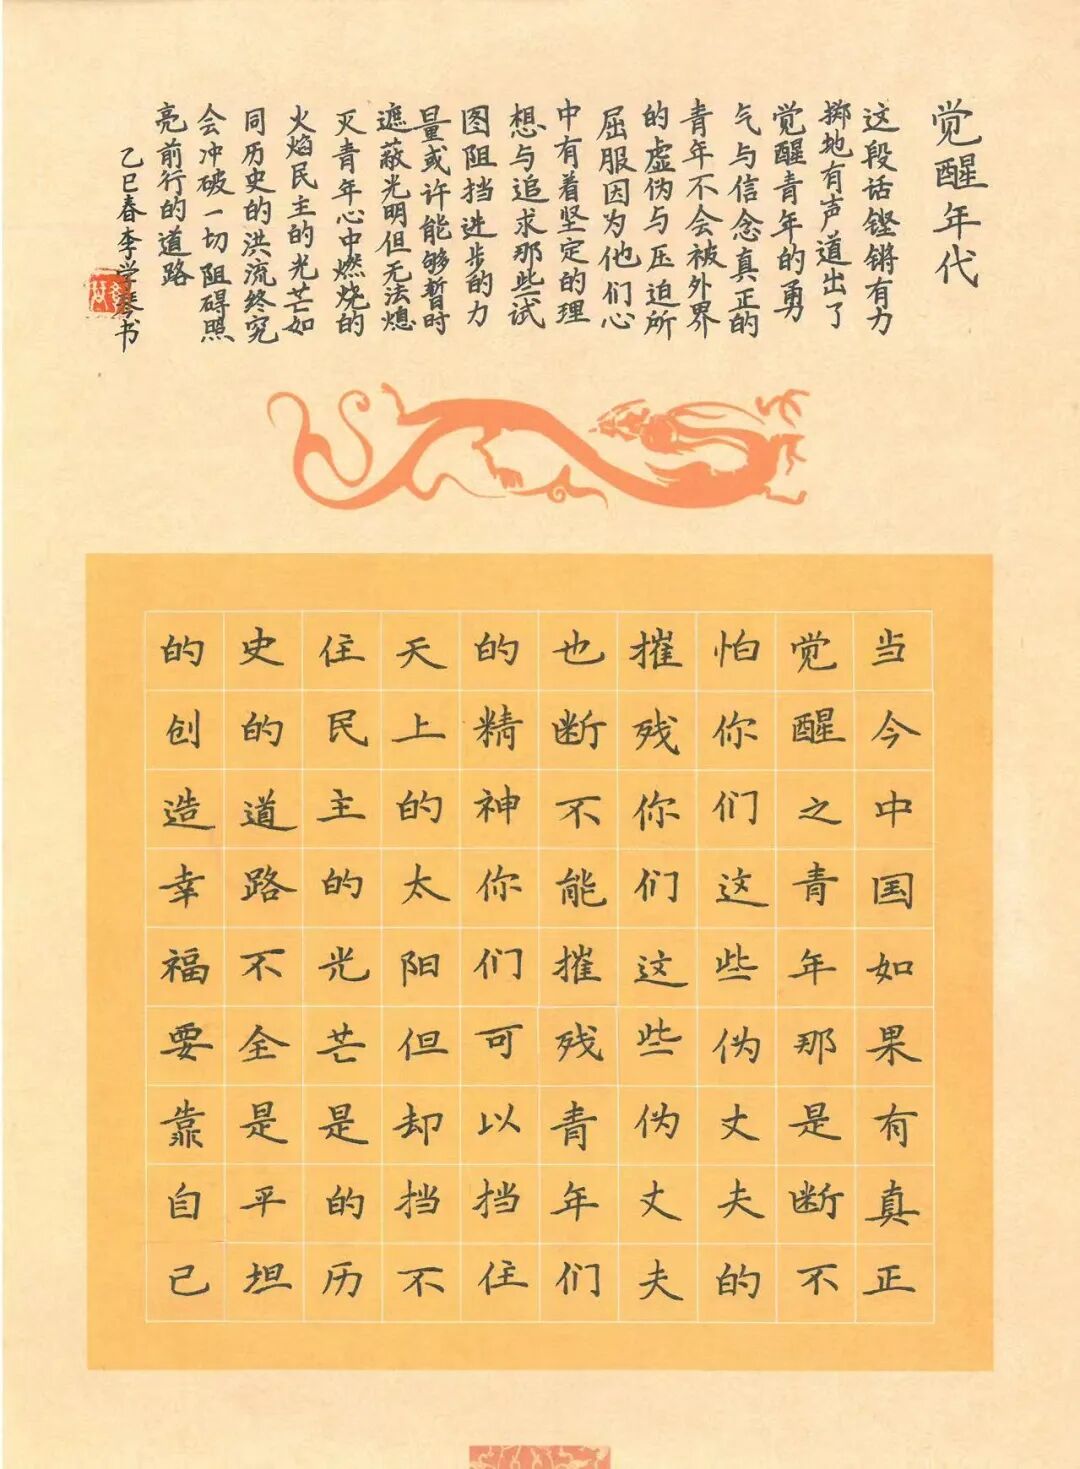 觉醒年代
这段话铿锵有力
掷地有声道出了
觉醒青年的勇
气与信念真正的
青年不会被外界
的虚伪与压迫所
屈服因为他们心
中有着坚定的理
想与追求那些试
图阻挡进步的力
量或许能够暂时
遮蔽光明但无法熄
灭青年心中燃烧的
火焰民主的光芒如
同历史的洪流终究
会冲破一切阻碍照
亮前行的道路
乙巳春李学琴书
当今中国如果有真正
觉醒之青年那是断不
怕你们这些伪丈夫的
摧残你们这些伪丈夫
也断不能摧残青年们
的精神你们可以挡住
天上的太阳但却挡不
住民主的光芒是的历
史的道路不全是平坦
的创造幸福要靠自己